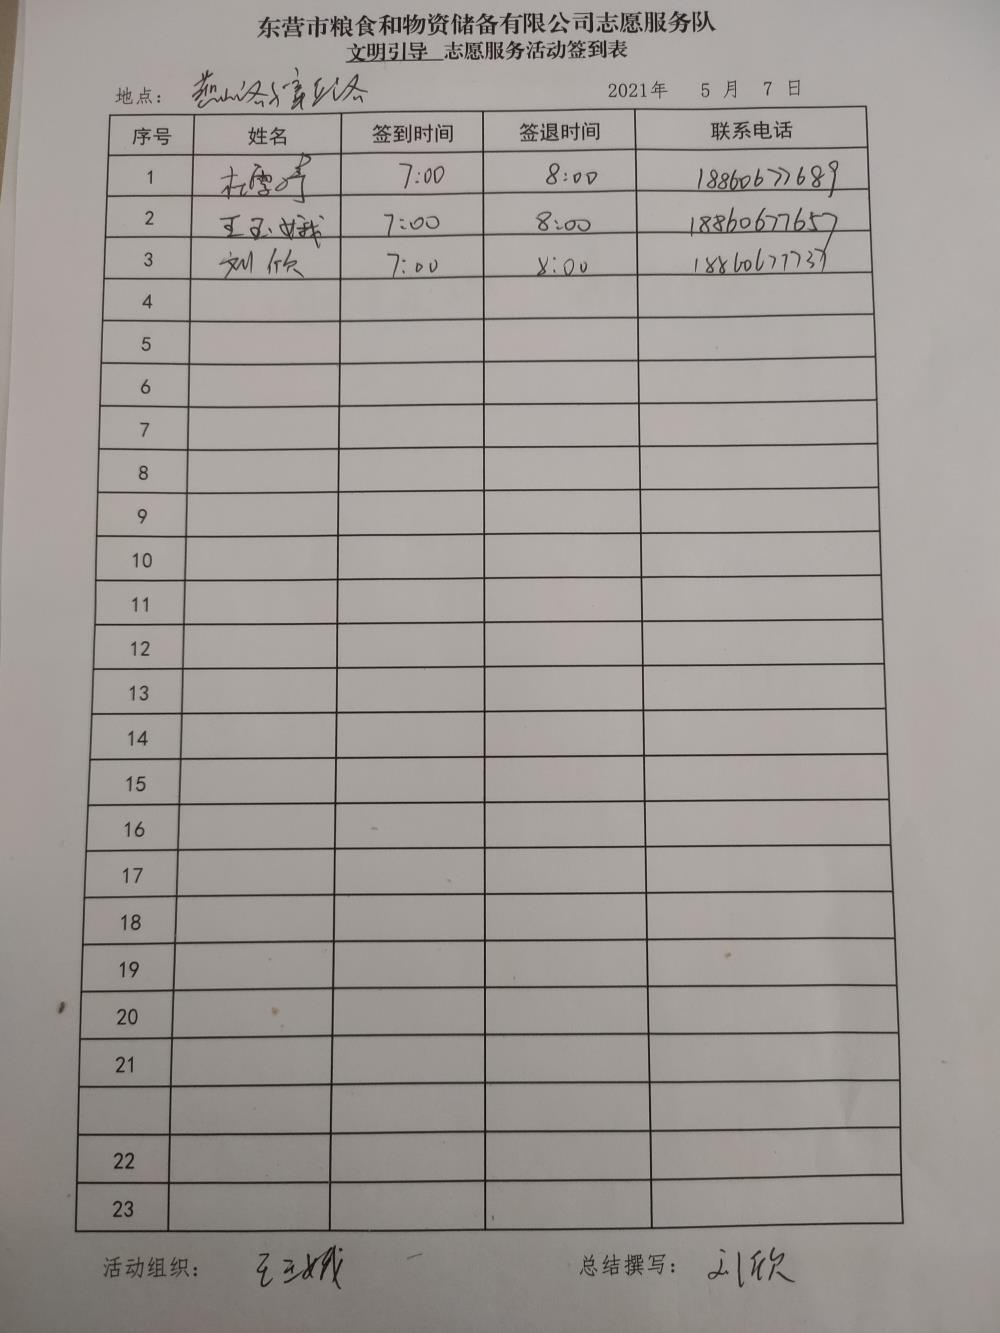 东营市粮食和物资储备有限公司志愿服务队
文明引导 志愿服务活动签到表
地点： 2021年 5 月 7 日
序号 姓名 签到时间 签退时间 联系电话
1 杜雪婷 7:00 8:00 18860677689
2 王玉娥 7:00 8:00 18860677657
3 刘欣 7:00 8:00 18860677737
4
5
6
7
8
9
10
11
12
13
14
15
16
17
18
19
20
21
22
23
活动组织： 王玉娥 总结撰写： 刘欣